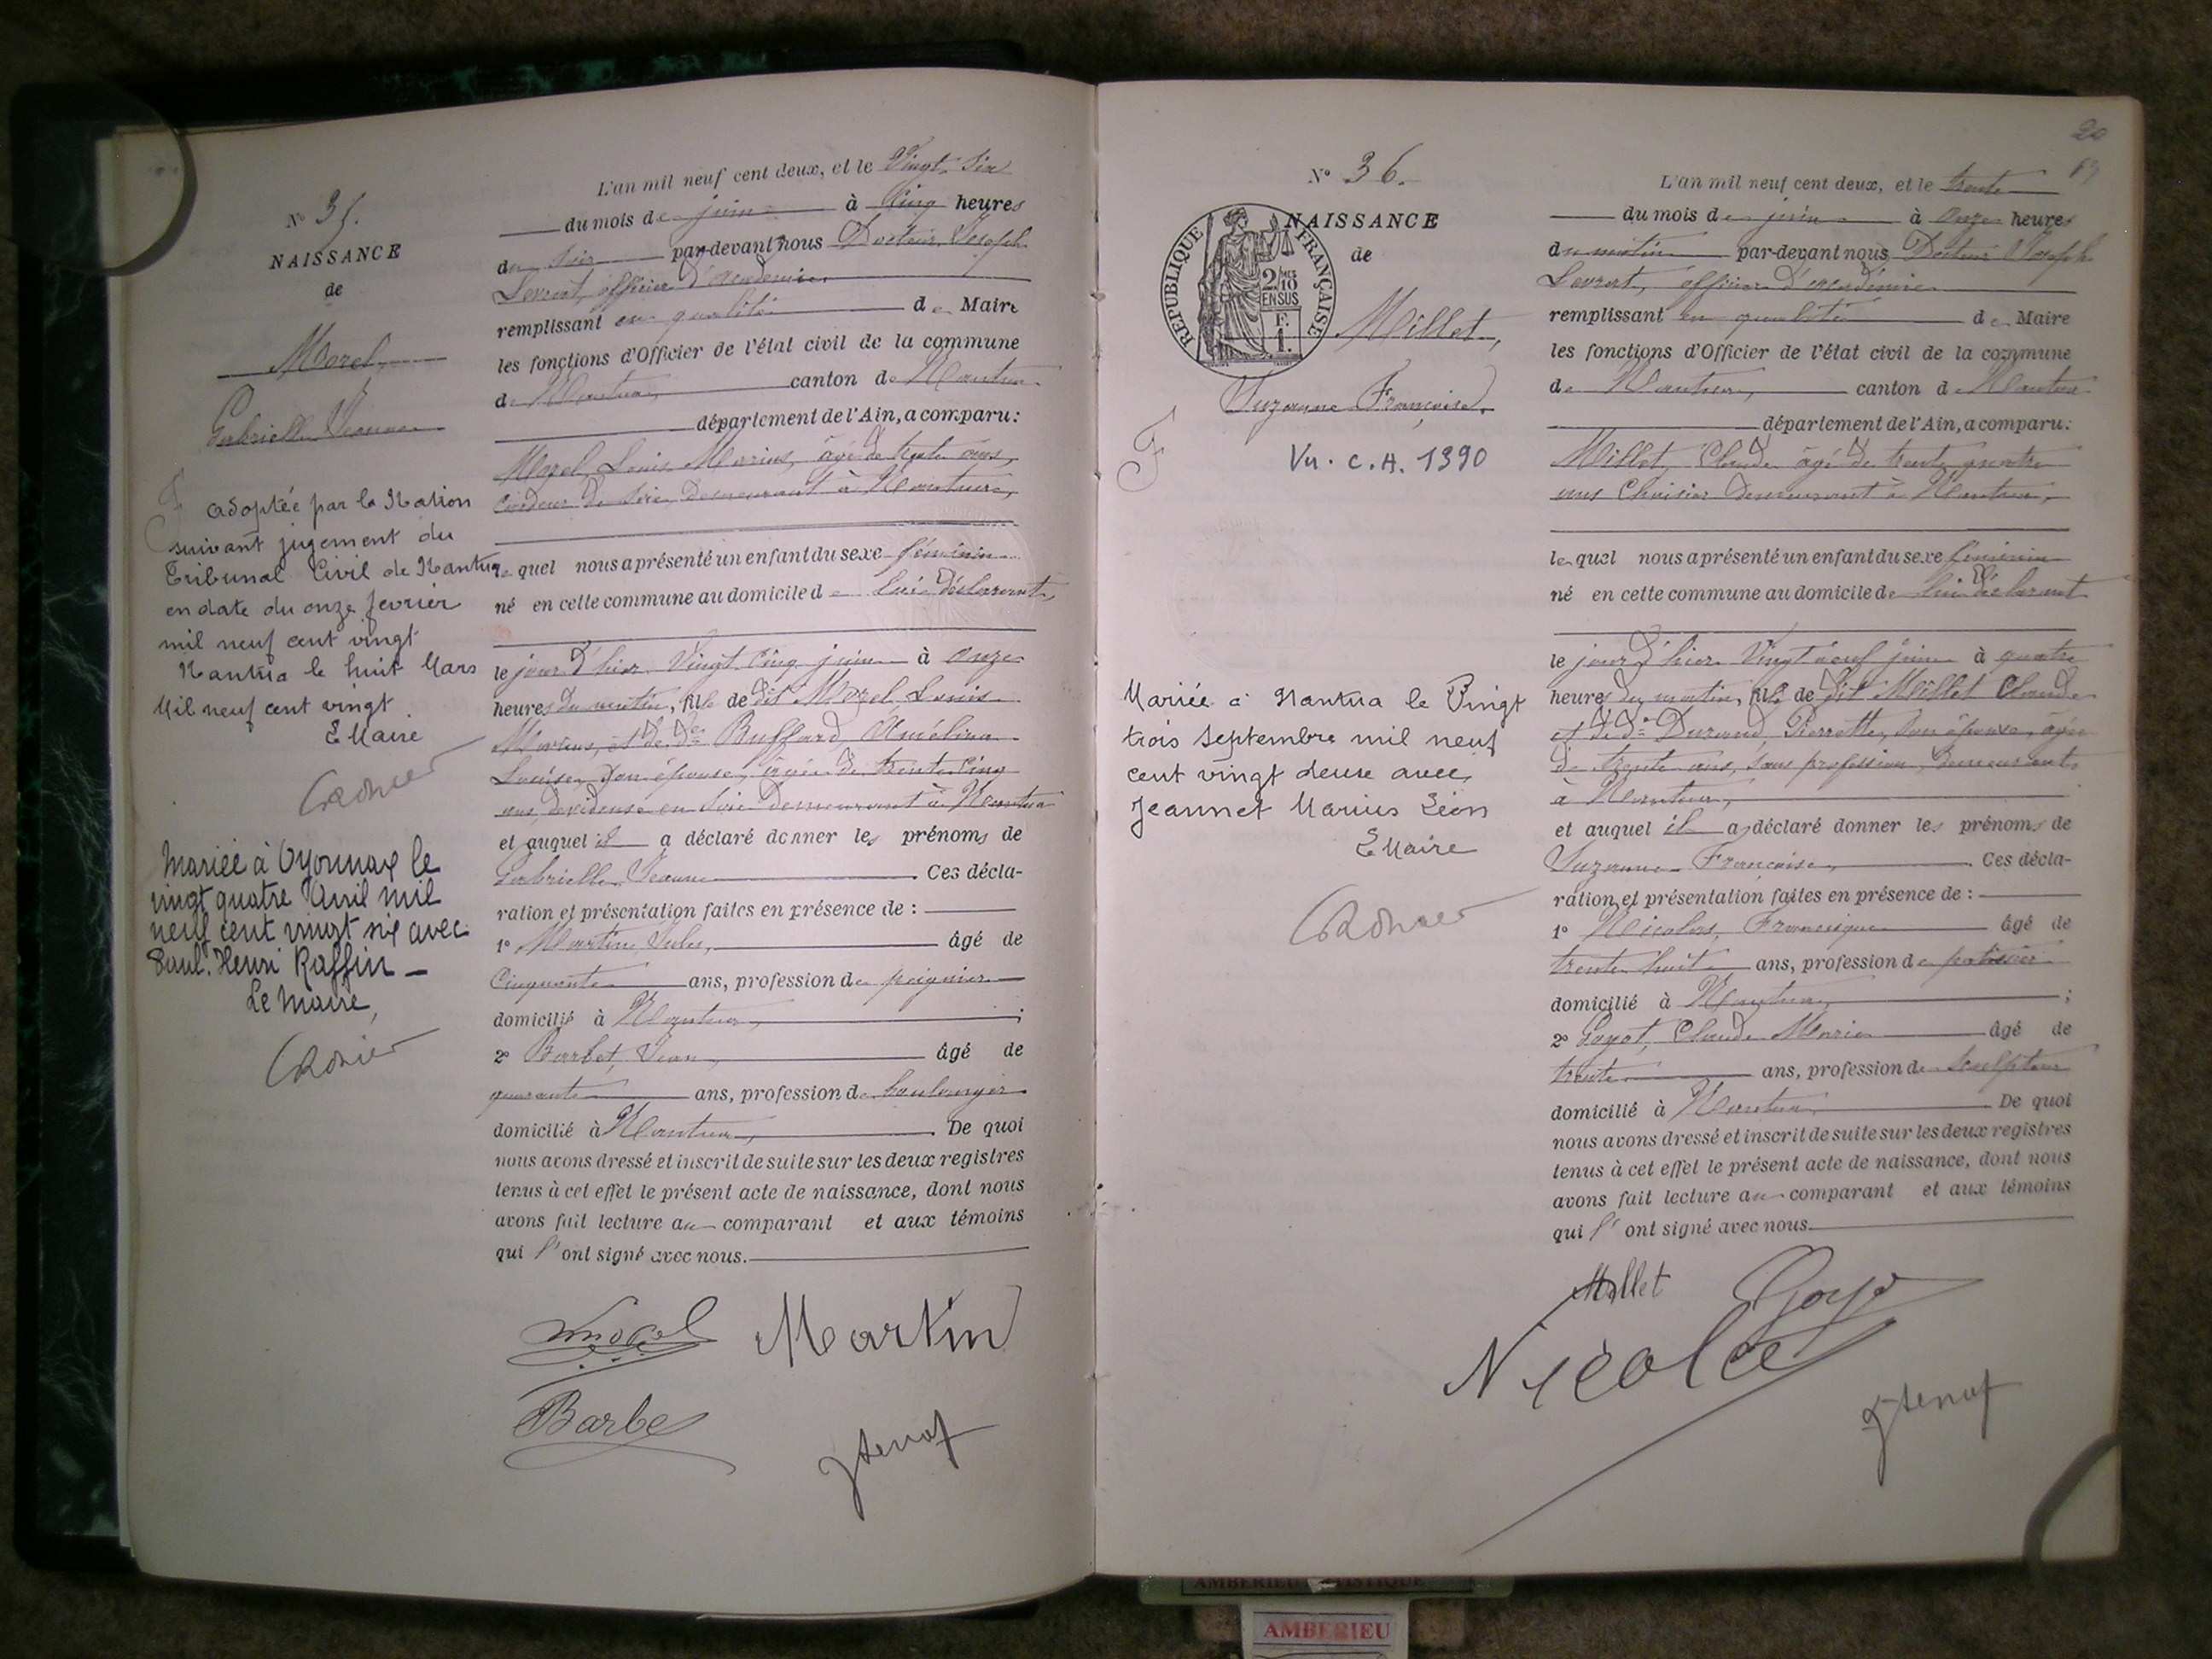 N° 35.
NAISSANCE
de
Morel,
Gabrielle Jeanne
F adoptée par la Nation
suivant jugement du
Tribunal Civil de Nantua
en date du onze fevrier
mil neuf cent vingt
Nantua le huit Mars
Mil neuf cent vingt
Le Maire
Mariée à Oyonnax le
vingt quatre Avril mil
neuf cent vingt six avec
Paul. Henri Raffin —
Le Maire,
L'an mil neuf cent deux, et le Vingt Six
du mois de juin à Cinq heures
du soir par-devant nous Docteur Joseph
Levrat, officier d'académie,
remplissant en qualité de Maire
les fonctions d'Officier de l'état civil de la commune
de Nantua, canton de Nantua
département de l'Ain, a comparu:
Morel, Louis Marius, âgé de trente ans,
de soie demeurant à Nantua,
lequel nous a présenté un enfant du sexe féminin
né en cette commune au domicile de lui déclarant,
le jour d'hier Vingt Cinq juin à onze
heures du matin, fille de dit Morel Louis
Marius, et de De Buffard, Amélina
Louise, son épouse, âgée de trente cinq
ans, dévideuse en soie demeurant à Nantua
et auquel il a déclaré donner les prénoms de
Gabrielle Jeanne Ces décla-
ration et présentation faites en présence de :
1° Martin Jules, âgé de
Cinquante ans, profession de peignier
domicilié à Nantua, ;
2° Barbet, Jean, âgé de
quarante ans, profession de boulanger
domicilié à Nantua, De quoi
nous avons dressé et inscrit de suite sur les deux registres
tenus à cet effet le présent acte de naissance, dont nous
avons fait lecture au comparant et aux témoins
qui l'ont signé avec nous.
Morel Martin
Barbet
20
N° 36.
NAISSANCE
de
REPUBLIQUE FRANÇAISE
2/10
EN SUS
F.
1.
Millet,
Suzanne Françoise.
F
Vu. C.A. 1390
Mariée à Nantua le Vingt
trois Septembre mil neuf
cent vingt deux avec
Jeannet Marius Léon
Le Maire
L'an mil neuf cent deux, et le trente
du mois de juin à onze heures
du matin par-devant nous Docteur Joseph
Levrat, officier d'académie
remplissant en qualité de Maire
les fonctions d'Officier de l'état civil de la commune
de Nantua, canton de Nantua
département de l'Ain, a comparu:
Millet, Claude âgé de trente quatre
ans Chaisier demeurant à Nantua,
lequel nous a présenté un enfant du sexe féminin
né en cette commune au domicile de lui déclarant
le jour d'hier Vingt neuf juin à quatre
heures du matin, fille de dit Millet Claude
et de De Durand, Pierrette, son épouse, âgée
de trente ans, sans profession, demeurant
à Nantua,
et auquel il a déclaré donner les prénoms de
Suzanne Françoise, Ces décla-
ration et présentation faites en présence de :
1° Nicolas, Francisque âgé de
trente huit ans, profession de patissier
domicilié à Nantua, ;
2° Goyot, Claude Marie âgé de
trente ans, profession de Sculpteur
domicilié à Nantua, De quoi
nous avons dressé et inscrit de suite sur les deux registres
tenus à cet effet le présent acte de naissance, dont nous
avons fait lecture au comparant et aux témoins
qui l'ont signé avec nous.
Millet
AMBERIEU